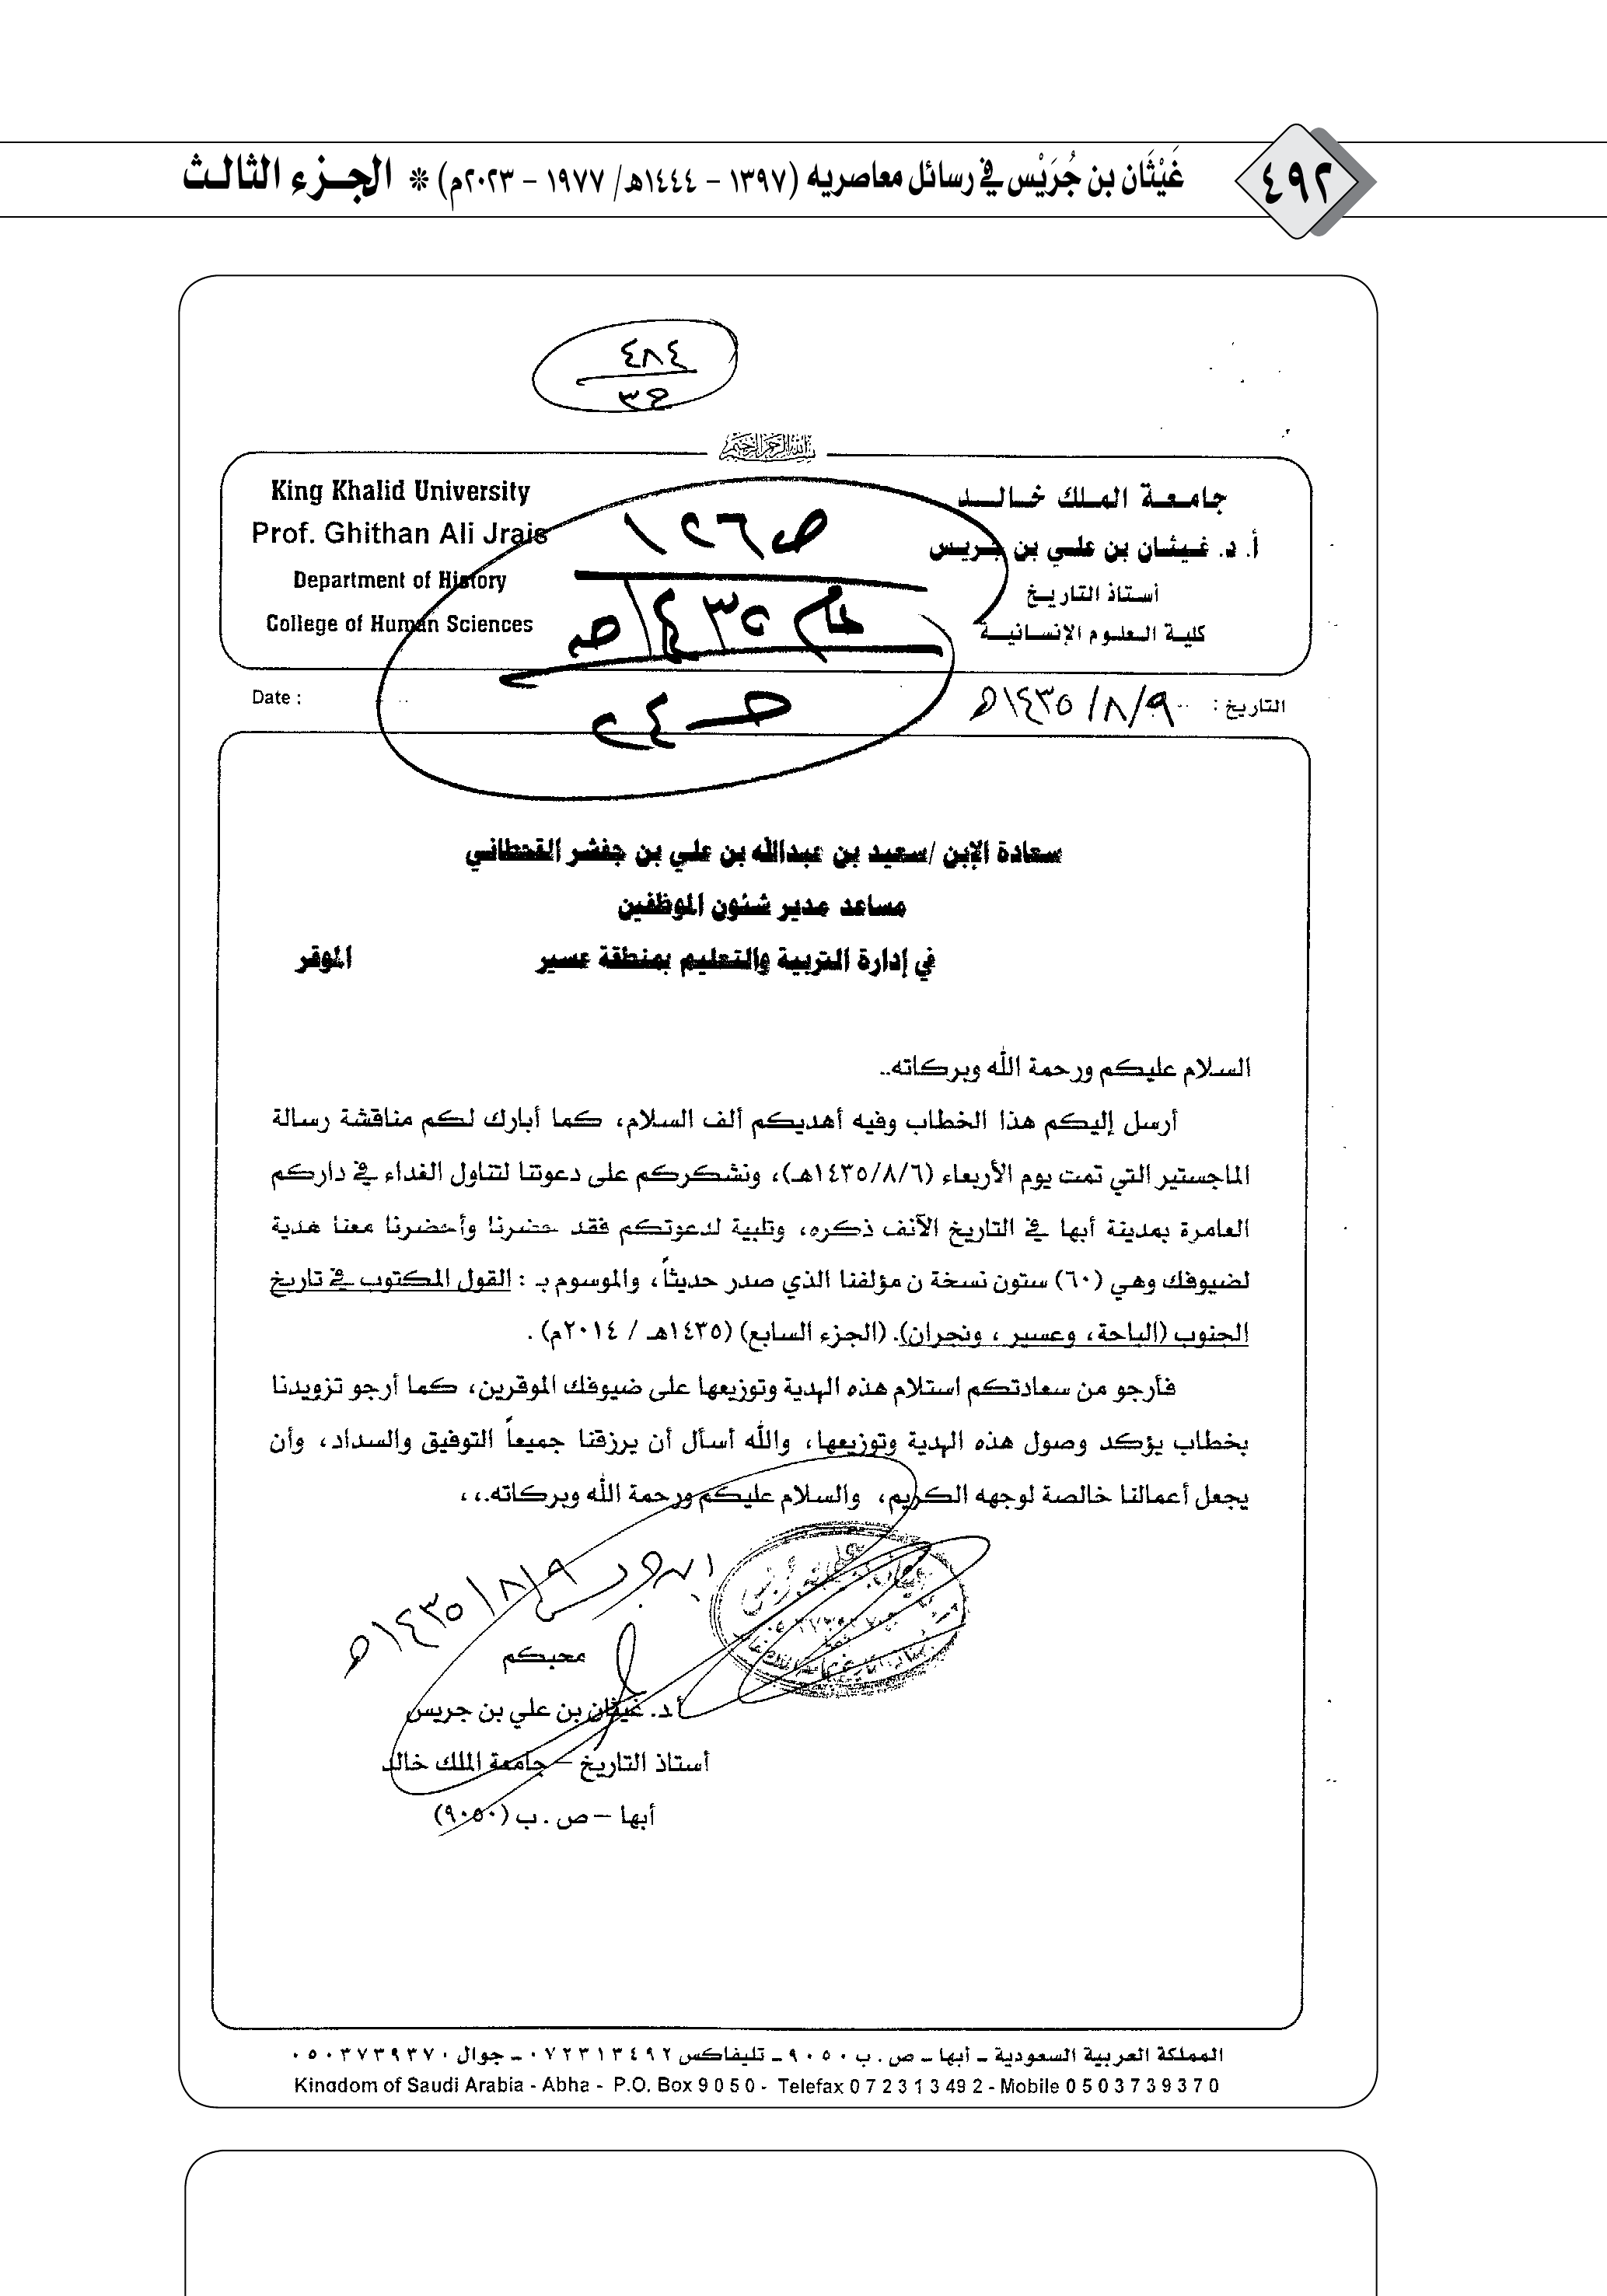 ٤٩٢
غَيْثَان بن جُرَيْس في رسائل معاصريه (١٣٩٧ – ١٤٤٤هـ/ ١٩٧٧ – ٢٠٢٣م) * الجـزء الثالـث
٤٨٤
بسم الله الرحمن الرحيم
جامعة الملك خالد
أ. د. غيثان بن علي بن جريس
أستاذ التاريخ
كلية العلوم الإنسانية
King Khalid University
Prof. Ghithan Ali Jrais
Department of History
College of Human Sciences
التاريخ : ٩/٨/١٤٣٥هـ
Date :
سعادة الإبن /سعيد بن عبدالله بن علي بن جفشر القحطاني
مساعد مدير شئون الموظفين
في إدارة التربية والتعليم بمنطقة عسير الموقر
السلام عليكم ورحمة الله وبركاته..
أرسل إليكم هذا الخطاب وفيه أهديكم ألف السلام، كما أبارك لكم مناقشة رسالة
الماجستير التي تمت يوم الأربعاء (١٤٣٥/٨/٦هـ)، ونشكركم على دعوتنا لتناول الغداء في داركم
العامرة بمدينة أبها في التاريخ الآنف ذكره، وتلبية لدعوتكم فقد حضرنا وأحضرنا معنا هدية
لضيوفك وهي (٦٠) ستون نسخة ن مؤلفنا الذي صدر حديثاً، والموسوم بـ : القول المكتوب في تاريخ
الجنوب (الباحة، وعسير ، ونجران). (الجزء السابع) (١٤٣٥هـ / ٢٠١٤م) .
فأرجو من سعادتكم استلام هذه الهدية وتوزيعها على ضيوفك الموقرين، كما أرجو تزويدنا
بخطاب يؤكد وصول هذه الهدية وتوزيعها، والله أسأل أن يرزقنا جميعاً التوفيق والسداد، وأن
يجعل أعمالنا خالصة لوجهه الكريم، والسلام عليكم ورحمة الله وبركاته.،،
ابن جريس ٩/٨/١٤٣٥هـ
محبكم
أ.د. غيثان بن علي بن جريس
أستاذ التاريخ – جامعة الملك خالد
أبها – ص . ب (٩٠٥٠)
المملكة العربية السعودية ـ أبها ـ ص . ب ٩٠٥٠ ـ تليفاكس ٠٧٢٣١٣٤٩٢ ـ جوال ٠٥٠٣٧٣٩٣٧٠
Kingdom of Saudi Arabia - Abha - P.O. Box 9 0 5 0 - Telefax 0 7 2 3 1 3 49 2 - Mobile 0 5 0 3 7 3 9 3 7 0